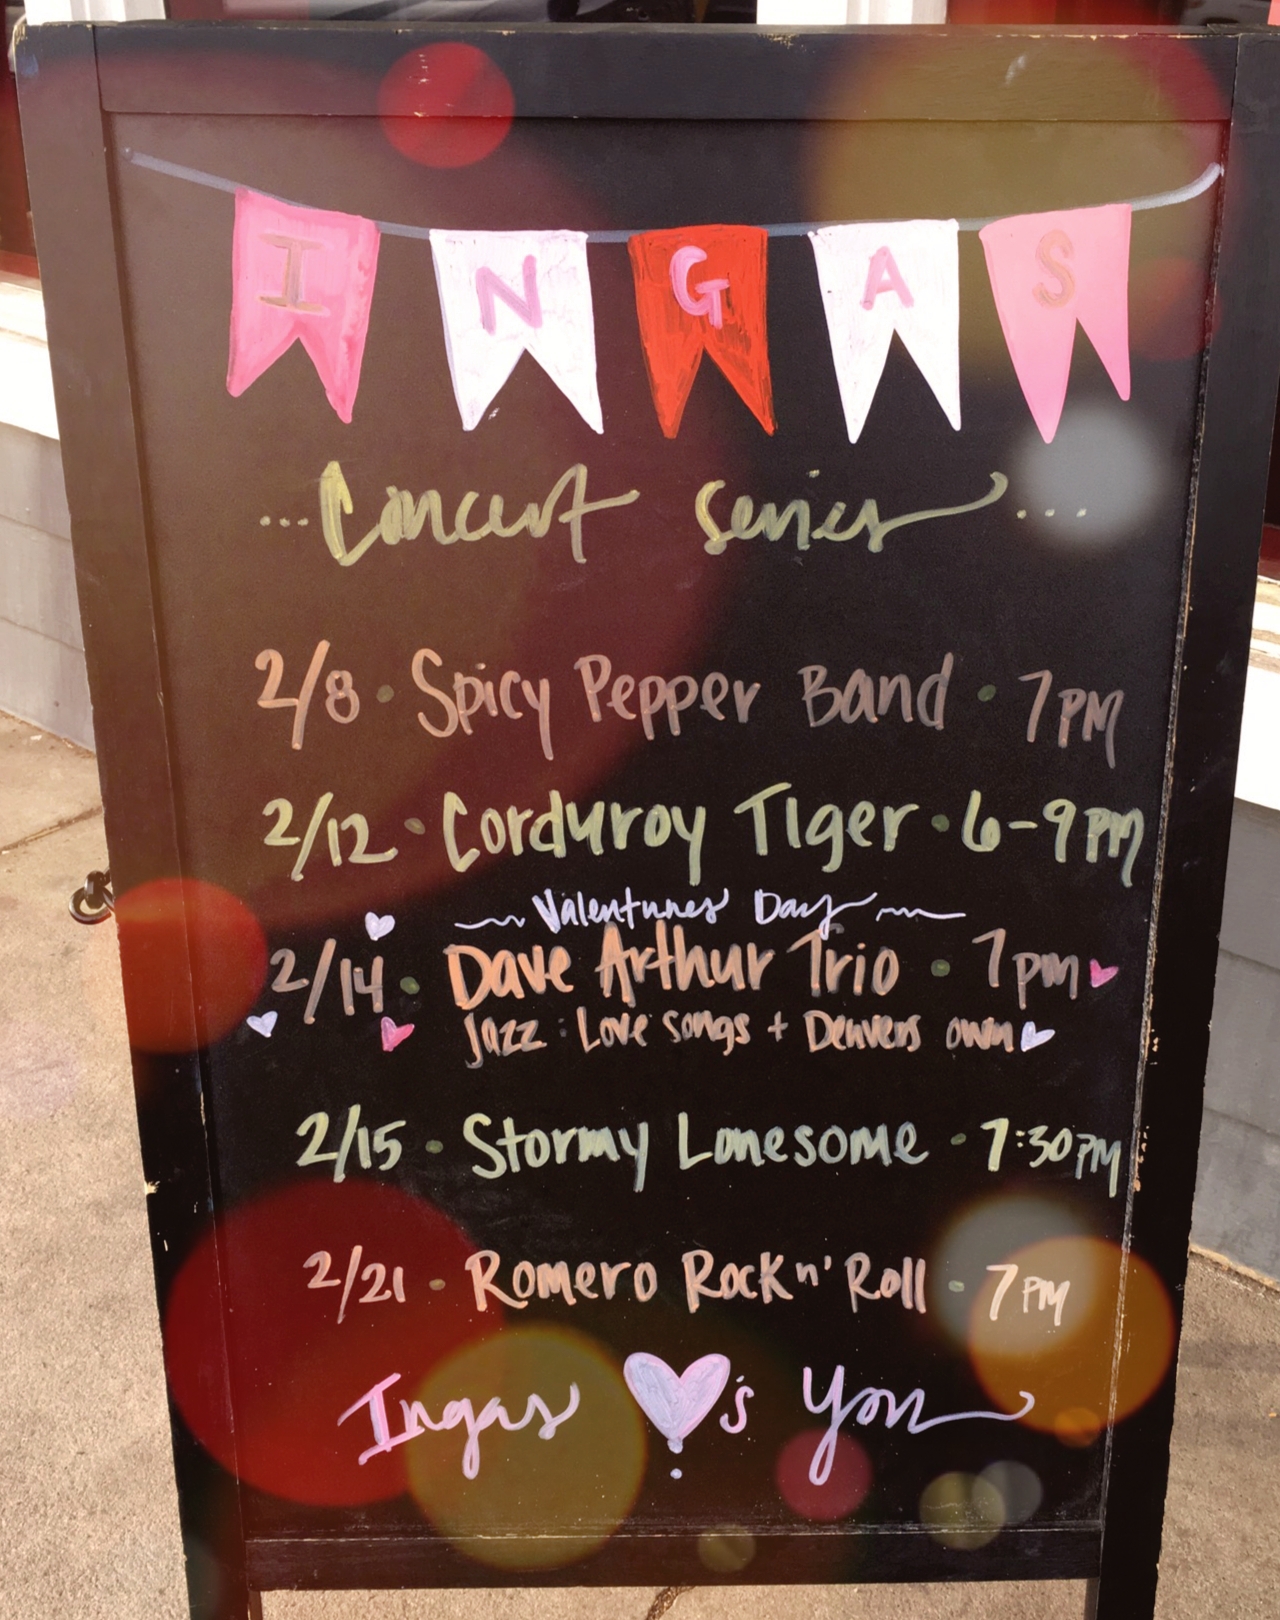 INGAS
...Concert series...
2/8 • Spicy Pepper Band • 7PM
2/12 • Corduroy Tiger • 6-9PM
Valentines Day
2/14 • Dave Arthur Trio • 7pm
Jazz : Love songs + Denvers own
2/15 • Stormy Lonesome • 7:30PM
2/21 • Romero Rock n' Roll • 7PM
Ingas ♥'s You